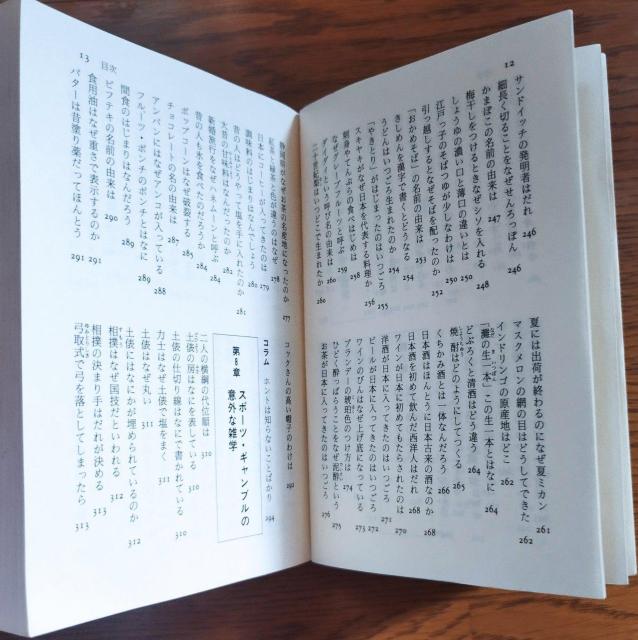 12
サンドイッチの発明者はだれ 246
細長く切ることをなぜせんろっぽん 246
かまぼこの名前の由来は 247
梅干しをつけるときなぜシソを入れる 248
しょうゆの濃い口と薄口の違いとは 250
江戸っ子のそばつゆが少しなわけは 250
引っ越しするとなぜそばを配ったのか 252
「おかめそば」の名前の由来は 253
きしめんを漢字で書くとどうなる 254
うどんはいつごろ生まれたのか 254
「やきとり」がはじまったのはいつごろ 255
スキヤキがなぜ日本を代表する料理か 256
刺身やてんぷらの食べはじめは 258
なぜグレープフルーツと呼ぶ 259
ダイダイという呼び名の由来は 260
二十世紀梨はいつどこで生まれたか 260
夏には出荷が終わるのになぜ夏ミカン 261
マスクメロンの網の目はどうしてできた 262
インドリンゴの原産地はどこ 262
「灘の生一本」この生一本とはなに 264
どぶろくと清酒はどう違う 264
焼酎はどのようにしてつくる 265
くちかみ酒とは一体なんだろう 266
日本酒はほんとうに日本古来の酒なのか 268
日本酒を初めて飲んだ西洋人はだれ 268
ワインが日本に初めてもたらされたのは 270
洋酒が日本に入ってきたのはいつごろ 271
ビールが日本に入ってきたのはいつごろ 272
ワインのびんはなぜ上げ底になっている 273
ブランデーの琥珀色のつけ方は 274
ひどく酔っぱらうことをなぜ泥酔という 275
お茶が日本に入ってきたのはいつごろ 276
13 目次
静岡県がなぜお茶の名産地になったのか 277
紅茶と緑茶と色が違うのはなぜ 278
日本にコーヒーが入ってきたのは 279
調味料のはじまりはなんでしょう 280
昔の人は内陸でなぜ塩を手に入れたのか 281
大昔の甘味料はなんだったのか 282
新婚旅行をなぜハネムーンと呼ぶ 284
昔の人も氷を食べたのだろうか 284
ポップコーンはなぜ破裂する 285
チョコレートの名の由来は 287
アンパンにはなぜアンコが入っている 288
フルーツ・ポンチのポンチとはなに 289
間食のはじまりはなんだろう 289
ビフテキの名前の由来は 290
食用油はなぜ重さで表示するのか 291
バターは昔塗り薬だってほんとう 291
コックさんの高い帽子のわけは 292
コラム ホントは知らないことばかり 294
第5章 スポーツ・ギャンブルの
意外な雑学
二人の横綱の代位順は 310
土俵の房はなにを表している 310
土俵の仕切り線はなにで書かれている 310
力士はなぜ土俵で塩をまく 311
土俵はなぜ丸い 311
土俵にはなにかが埋められているのか 312
相撲はなぜ国技だといわれる 312
相撲の決まり手はだれが決める 313
弓取式で弓を落としてしまったら 313